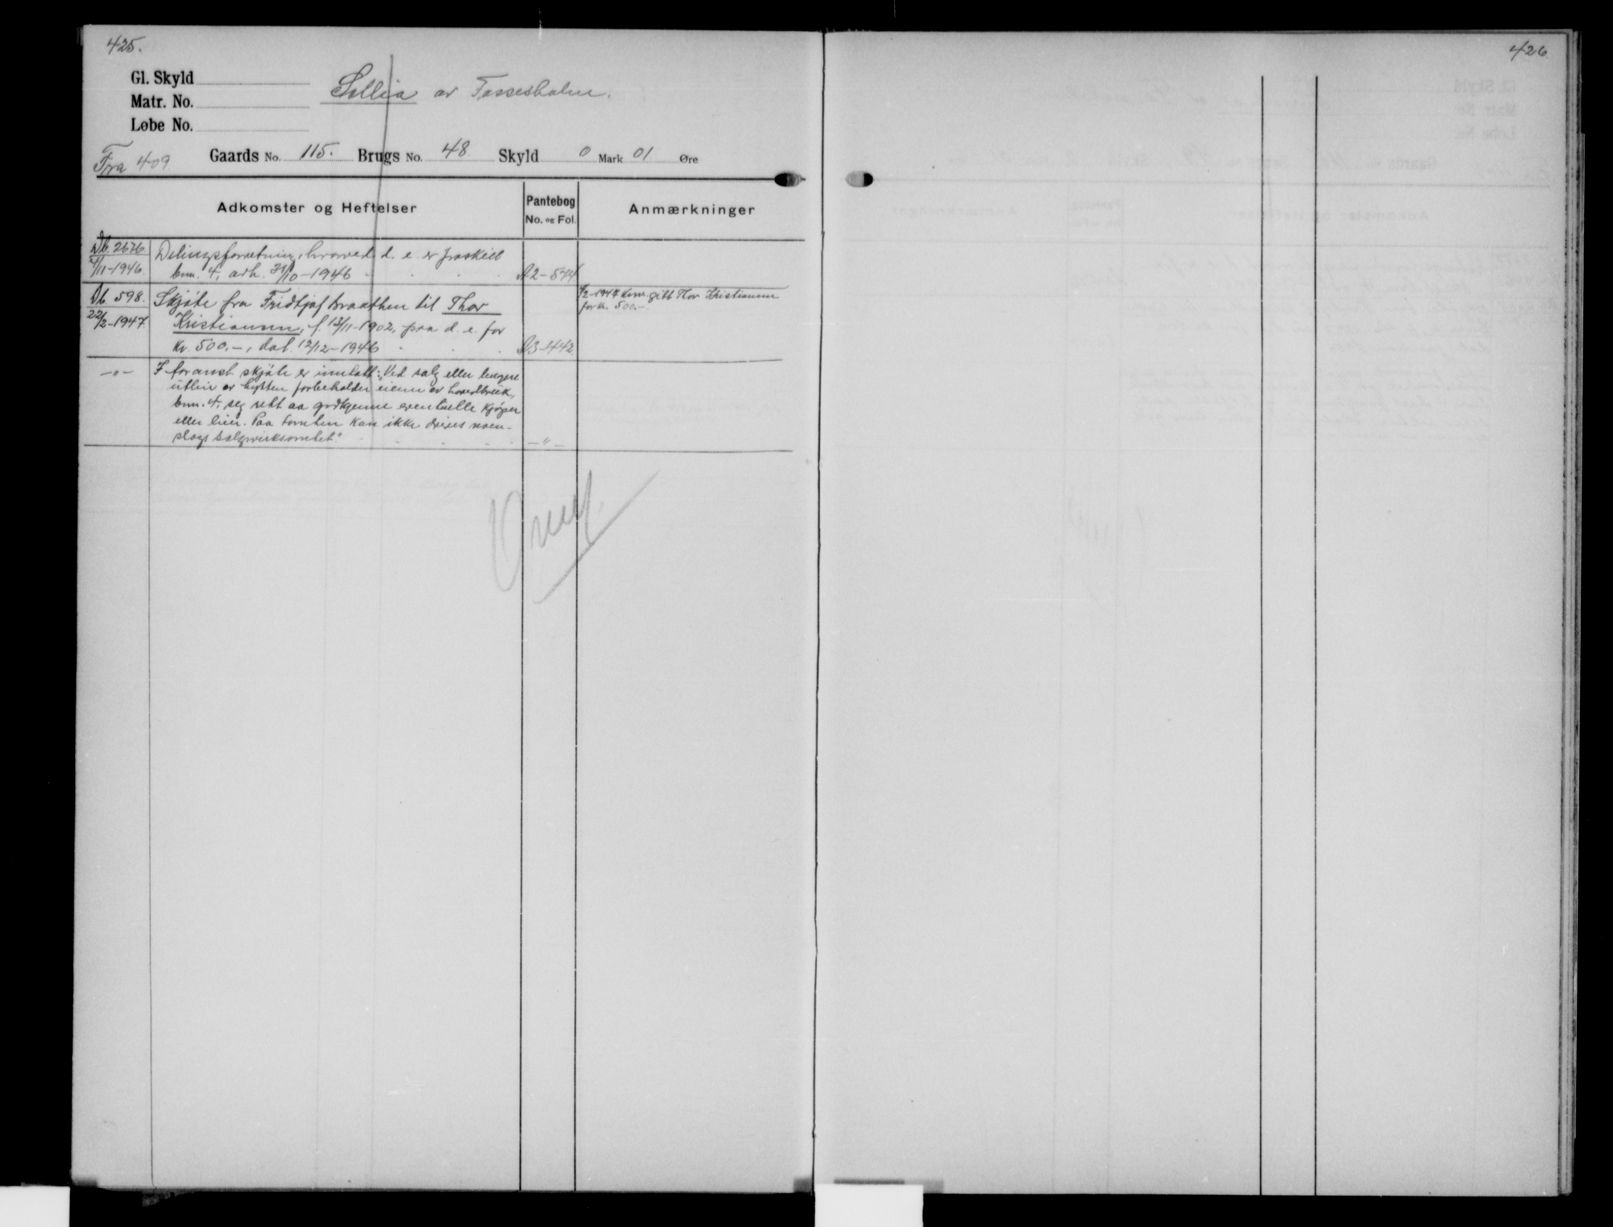 425.
426
Gl. Skyld
Matr. No.
Løbe No.
Sollia av Fossesholm.
Fra 409
Gaards No. 115. Brugs No. 48 Skyld 0 Mark 01 Øre
Adkomster og Heftelser
Pantebog
No. og Fol.
Anmærkninger
Db. 2676 Delingsforretning, hvorved d. e. er fraskilt
/11-1946 bnr. 4, avh. 31/10-1946 A2-544
Db 598. Skjøte fra Fridtjof Braathen til Thor
22/2-1947 Kristiansen, f. 13/11-1902, paa d. e. for
kr. 500.-, dat. 12/12-1946 A3-442
gitt Thor Kristiansen
for kr. 500.-
-"- I foranst. skjøte er inntatt: "Ved salg eller lengere
utleie av hytten forbeholder eieren av hovedbruk,
bnr. 4, seg rett aa godkjenne eventuelle kjøper
eller leier. Paa tomten kan ikke drives noen-
slags salgsvirksomhet." -"-